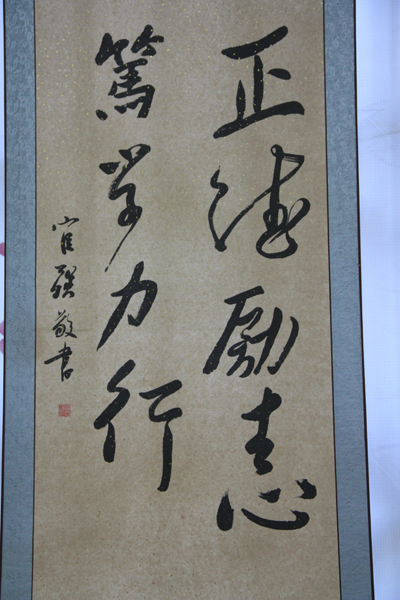 正德励志
笃学力行
官强敬书